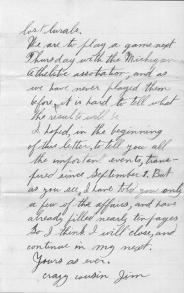 lost
We are to play a game next
Thursday with the Michigan
Athletic assotiation, and as
we have never played them
before, it is hard to tell what
the results will be
I hoped, in the beginning
of this letter, to tell you all
the important events, trans-
fired since September 1. But
as you see, I have told you only
a few of the affairs, and have
already filled nearly ten pages
So I think I will close, and
continue in my next.
Yours as ever.
crazy cousin Jim